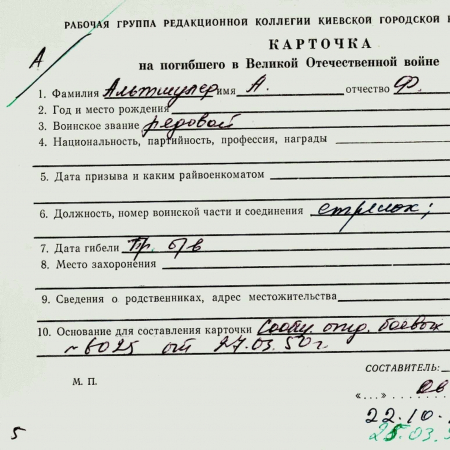 РАБОЧАЯ ГРУППА РЕДАКЦИОННОЙ КОЛЛЕГИИ КИЕВСКОЙ ГОРОДСКОЙ
А
КАРТОЧКА
на погибшего в Великой Отечественной войне
1. Фамилия Альтшулер имя А. отчество Ф.
2. Год и место рождения
3. Воинское звание рядовой
4. Национальность, партийность, профессия, награды
5. Дата призыва и каким райвоенкоматом
6. Должность, номер воинской части и соединения стрелок;
7. Дата гибели пр. б/в
8. Место захоронения
9. Сведения о родственниках, адрес местожительства
10. Основание для составления карточки Сообщ. отд. боевых
№ 6025 от 27.03.50 г.
СОСТАВИТЕЛЬ:
М. П.
«...»
22.10.
25.03.
5